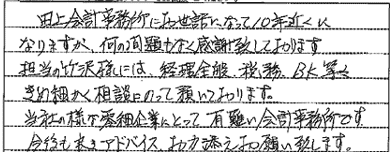 田上会計事務所にお世話になって10年近くに
なりますが、何の問題もなく感謝致しております
担当の竹沢様には、経理全般、税務、BK等々
きめ細かく相談にのって頂いております。
当社の様な零細企業にとって有難い会計事務所です
今後も良きアドバイス、お力添えお願い致します。